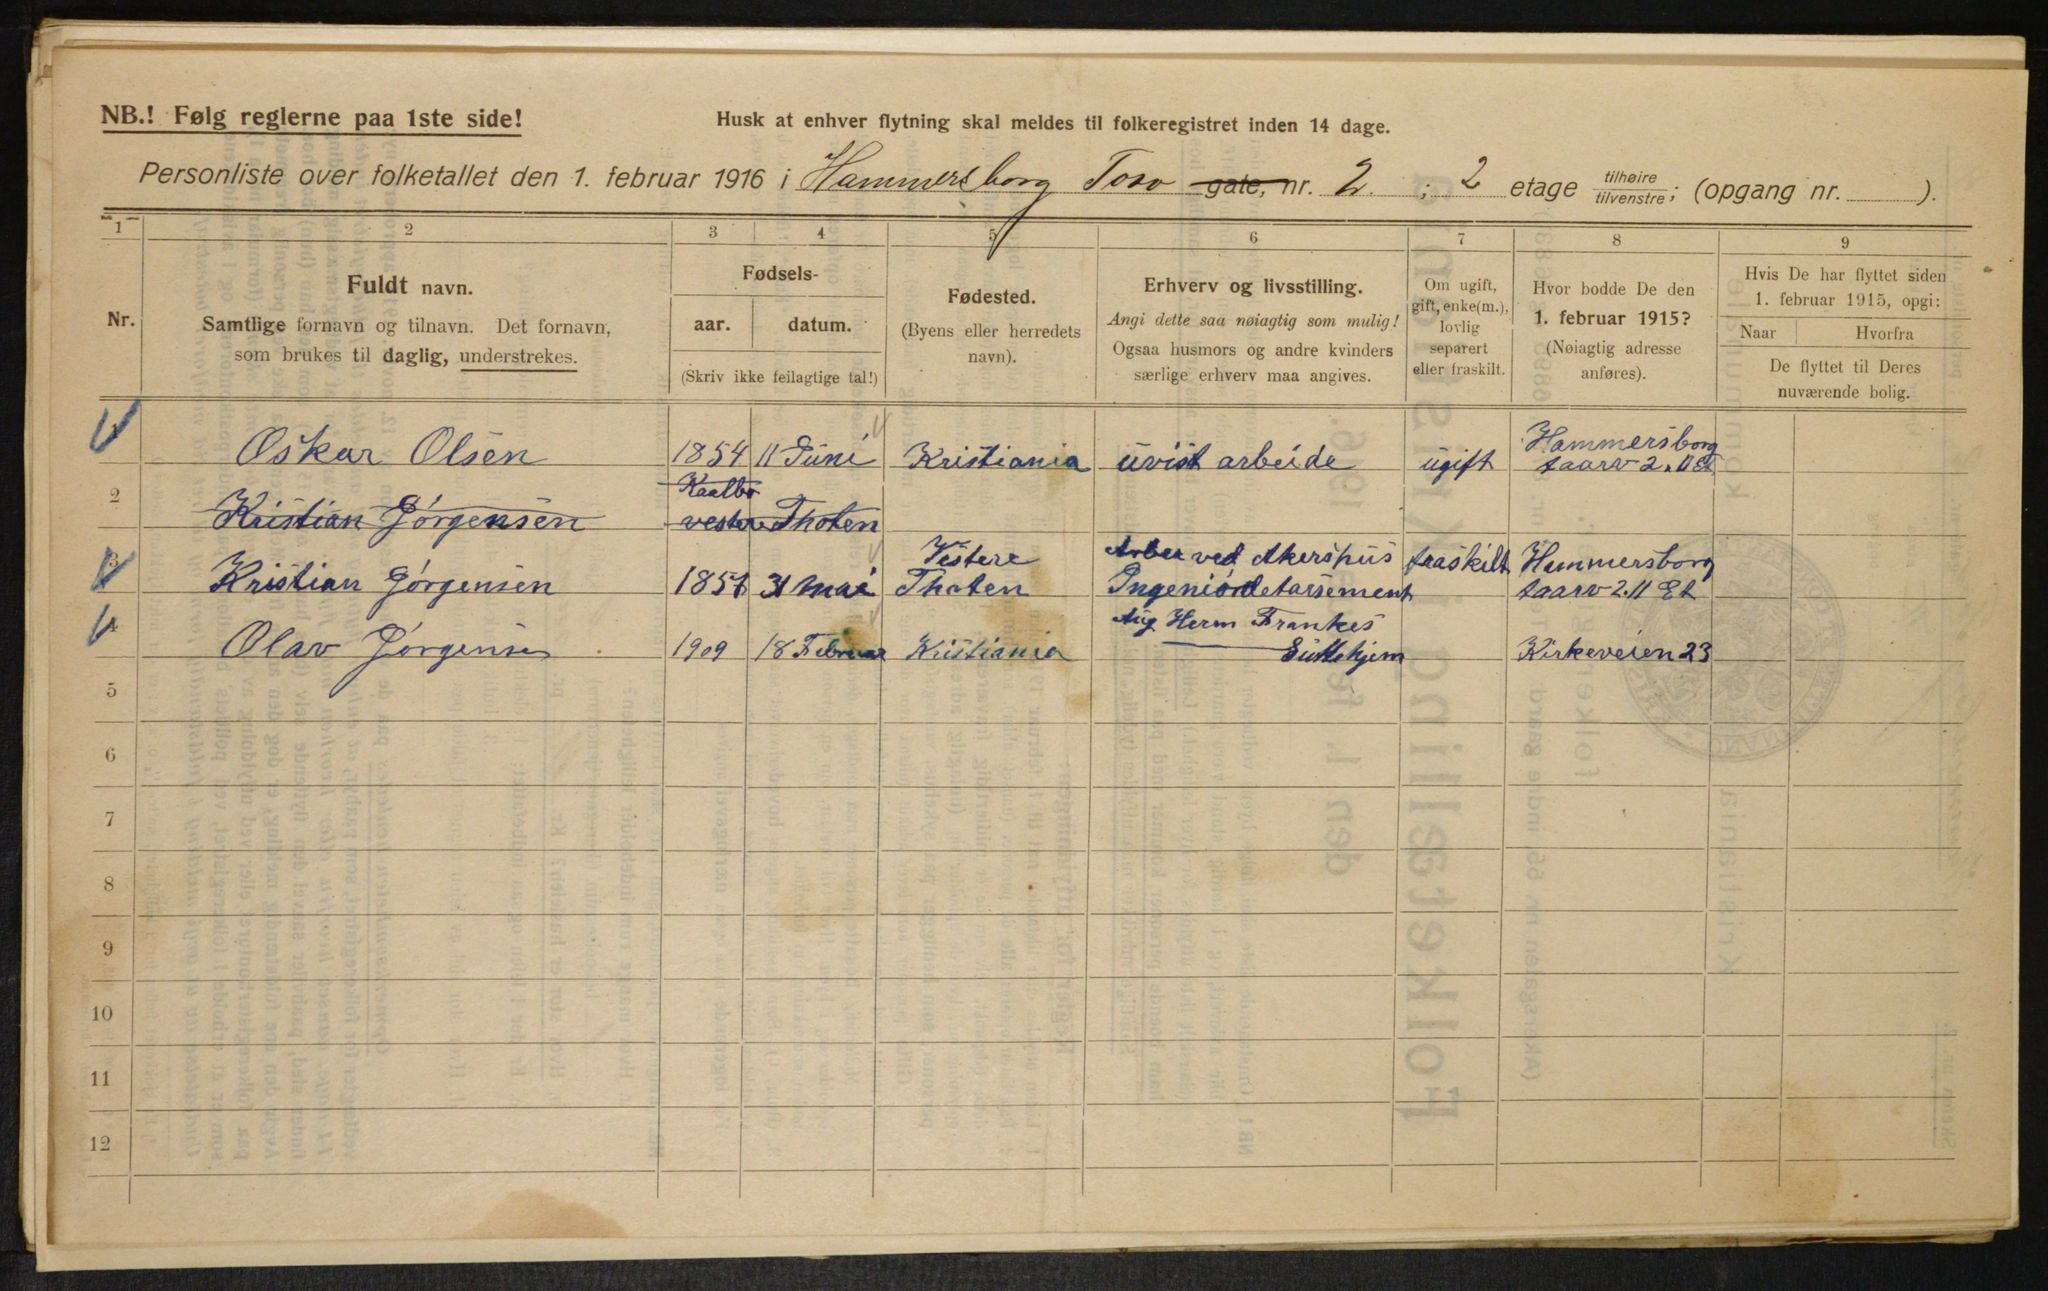 NB.! Følg reglerne paa 1ste side!
Husk at enhver flytning skal meldes til folkeregistret inden 14 dage.
Personliste over folketallet den 1. februar 1916 i Hammersborg Torv gate, nr. 2 ; 2 etage tilhøire tilvenstre ; (opgang nr. ).
1 2 3 4 5 6 7 8 9
Nr.
Fuldt navn.
Samtlige fornavn og tilnavn. Det fornavn,
som brukes til daglig, understrekes.
Fødsels-
aar. datum.
(Skriv ikke feilagtige tal!)
Fødested.
(Byens eller herredets
navn).
Erhverv og livsstilling.
Angi dette saa nøiagtig som mulig!
Ogsaa husmors og andre kvinders
særlige erhverv maa angives.
Om ugift,
gift, enke(m.),
lovlig
separert
eller fraskilt.
Hvor bodde De den
1. februar 1915?
(Nøiagtig adresse
anføres).
Hvis De har flyttet siden
1. februar 1915, opgi:
Naar Hvorfra
De flyttet til Deres
nuværende bolig.
Oskar Olsen 1854 11 Juni Kristiania uvist arbeide ugift Hammersborg
taarv 2. II Et
2 Kristian Jørgensen vestere Thoten
3 Kristian Jørgensen 1851 31 mai Vestere
Thoten
Arbei ved Akershus
fraskilt Hammersborg
taarv 2. II Et
4 Olav Jørgensen 1909 18 Februar Kristiania Aug Herm Frankes
Guttehjem Kirkeveien 23
5
6
7
8
9
10
11
12